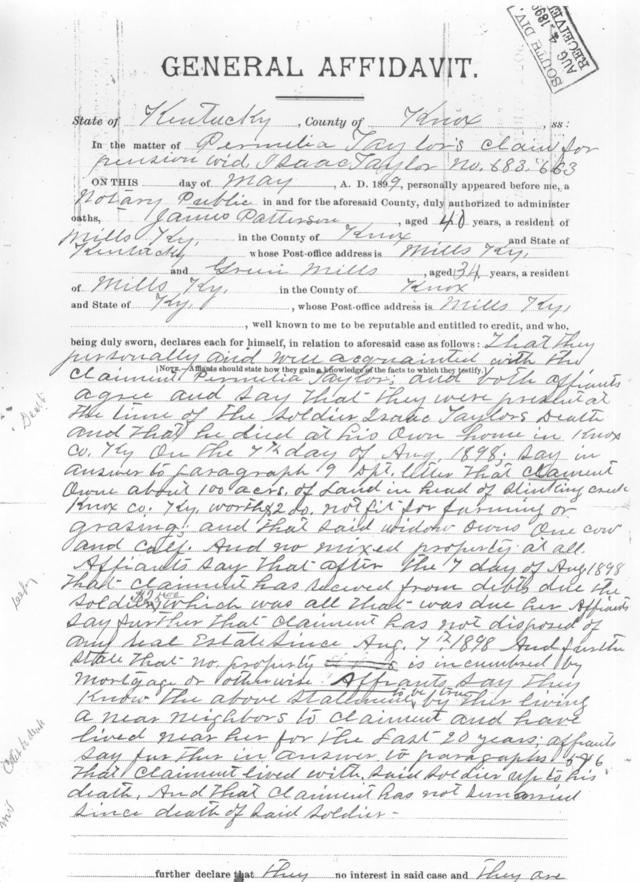 SOUTH DIV.
AUG 4 1899
RECEIVED
GENERAL AFFIDAVIT.
State of Kentucky, County of Knox, ss:
In the matter of Permelia Taylor's claim for
pension wid. Isaac Taylor No. 683.663
ON THIS day of May, A. D. 1899, personally appeared before me, a
Notary Public in and for the aforesaid County, duly authorized to administer
oaths, James Patterson, aged 40 years, a resident of
Mills Ky. in the County of Knox and State of
Kentucky whose Post-office address is Mills Ky.
and Mills, aged 34 years, a resident
of Mills Ky. in the County of Knox
and State of Ky., whose Post-office address is Mills Ky.
, well known to me to be reputable and entitled to credit, and who,
being duly sworn, declares each for himself, in relation to aforesaid case as follows: That they
personally and well acquainted with the
[NOTE.—Affiants should state how they gain a knowledge of the facts to which they testify.]
claiment Permelia Taylor; and both affiants
agree and say that they were present at
the time of the soldier Isaac Taylors Death
and that he died at his own home in Knox
co. Ky on the 7th day of Aug. 1898; say in
answer to paragraph 9 Dpt. letter that claiment
owne about 100 acrs. of Land in head of Stinking creek
Knox co. Ky. worth not fit for farming or
grasing; and that said widow owns one cow
and calf. And no mixed property at all.
Affiants say that after the 7 day of Aug 1898
that claiment has recived from debts due the
soldier which was all that was due her Affiants
say further that claiment has not disposed of
any real Estate since Aug. 7th 1898 And further
state that no property is incumbered by
mortgage or otherwise. Affiants say they
know the above statement to be true by ther living
a near neighbors to claiment and have
lived near her for the last 20 years; affiants
say further in answer to paragraphs 5 & 6
that claiment lived with said soldier up to his
death, And that claiment has not remarried
since death of said soldier-
further declare that they no interest in said case and they are
Death